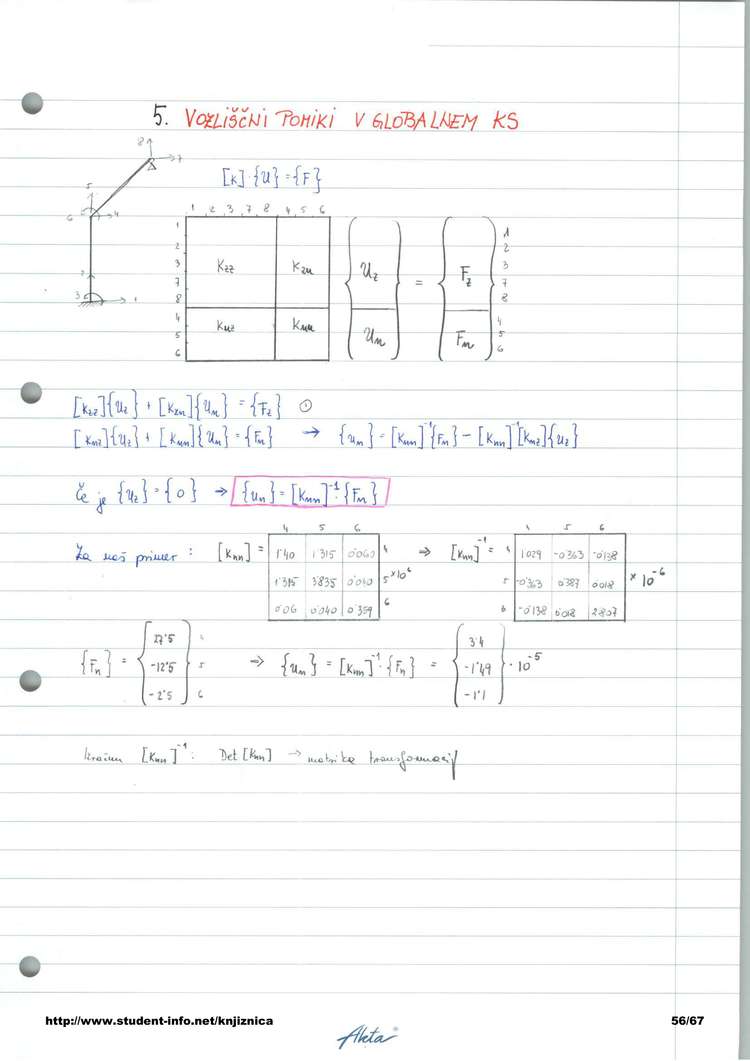 5. VOZLIŠČNI POMIKI V GLOBALNEM KS
8
7
5
6 4
2
3 1
[K]·{U}={F}
1 2 3 7 8 4 5 6
1 2 3 7 8 4 5 6
Kzz Kzn
Knz Knn
{Uz Un} = {Fz Fn}
1 2 3 7 8 4 5 6
[Kzz]{Uz} + [Kzn]{Un} = {Fz} ①
[Knz]{Uz} + [Knn]{Un} = {Fn} → {Un} = [Knn]⁻¹{Fn} - [Knn]⁻¹[Knz]{Uz}
Če je {Uz} = {0} → {Un} = [Knn]⁻¹·{Fn}
4 5 6 4 5 6
Za naš primer : [Knn] = → [Knn]⁻¹ =
1'40 1'315 0'060 4
1'315 3'835 0'040 5 × 10⁶
0'06 0'040 0'359 6
4 1'029 -0'363 -0'138
5 -0'363 0'387 0'018 × 10⁻⁶
6 -0'138 0'018 2'807
{Fn} = {27'5 -12'5 -2'5} 4 5 6 → {Un} = [Knn]⁻¹·{Fn} = {3'4 -1'49 -1'1} · 10⁻⁵
[Knn]⁻¹ : Det [Knn] → matrika transformacij
http://www.student-info.net/knjiznica 56/67
Aleta